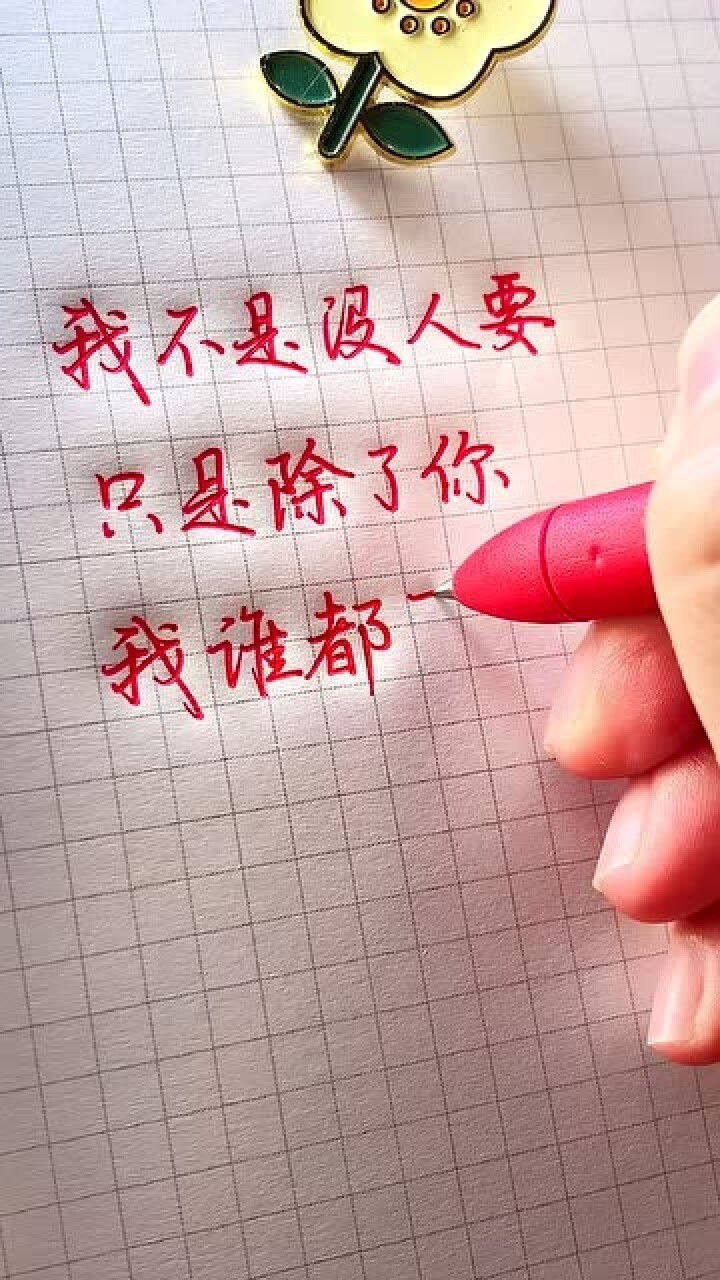 我不是没人要
只是除了你
我谁都